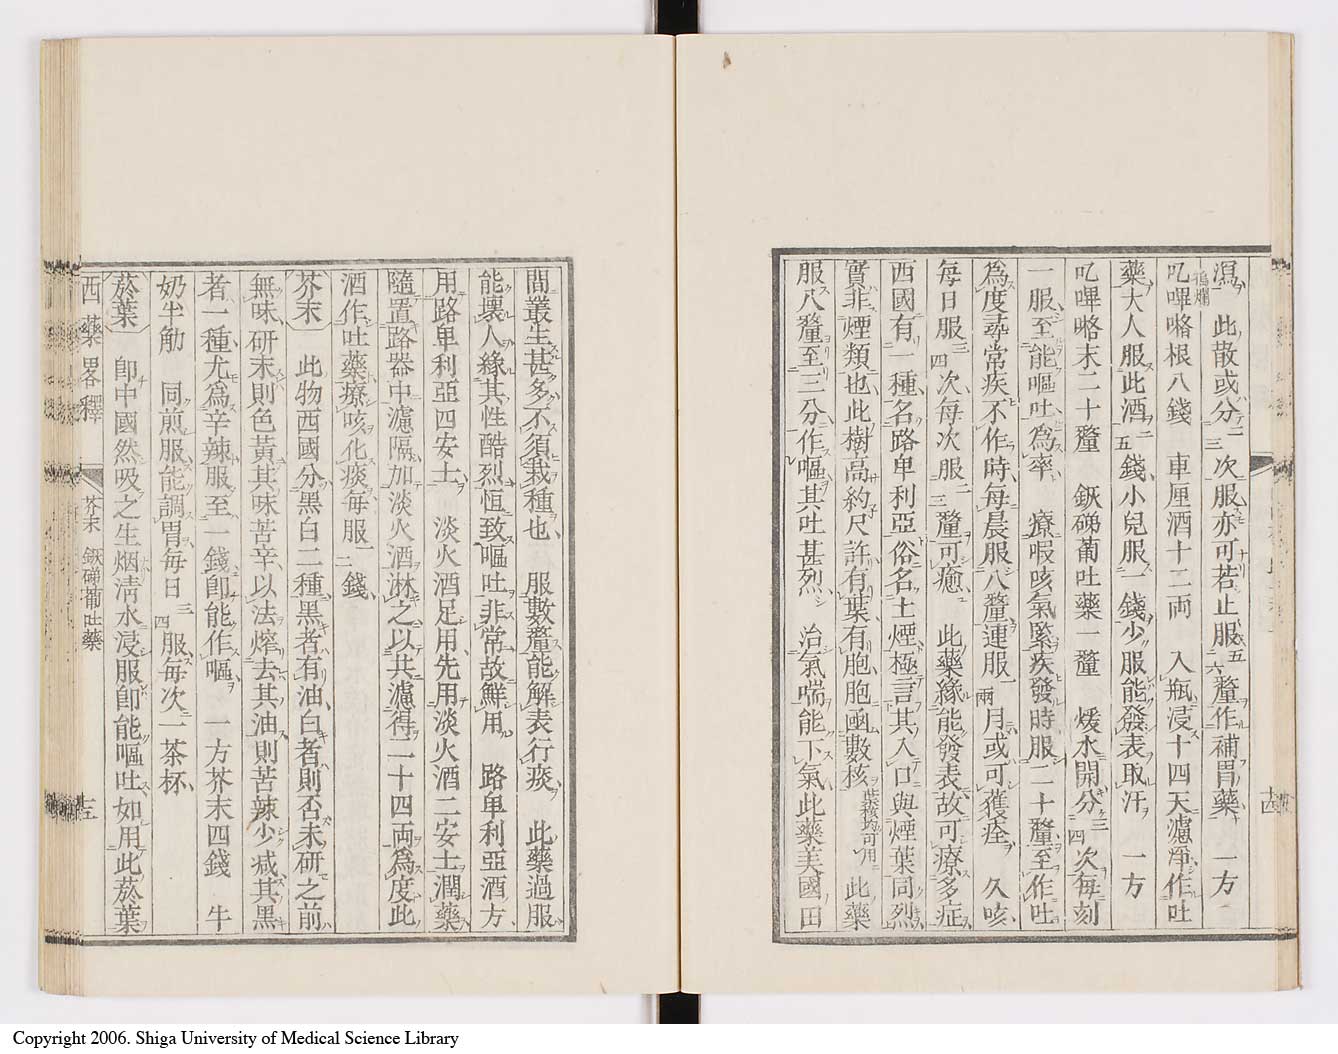 瀉 此散或分三次服亦可若止服五六釐作補胃藥 一方
搗爛
叱嗶咯根八錢 車厘酒十二両 入瓶浸十四天濾淨作吐
藥大人服此酒五錢小兒服一錢少服能發表取汗 一方
叱嗶咯末二十釐 鈬碲葡吐藥一釐 煖水開分三四次每刻
一服至能嘔吐爲率 療嘏咳氣緊疾發時服二十釐至作吐
爲度尋常疾不作時每晨服八釐連服一兩月或可獲痊 久咳
每日服三四次每次服二三釐可癒 此藥緣能發表故可療多症
西國有一種名路卑利亞俗名土煙極言其入口與煙葉同烈
實非煙類也此樹高約尺許有葉有胞胞函數核葉核均可用 此藥
服八釐至三分作嘔其吐甚烈 治氣喘能下氣此藥美國田
間叢生甚多不須栽種也 服數釐能解表行痰 此藥過服
能壞人緣其性酷烈恒致嘔吐非常故鮮用 路卑利亞酒方
用路卑利亞四安士 淡火酒足用先用淡火酒二安士潤藥
隨置路器中濾隔加淡火酒淋之以共濾得二十四両爲度此
酒作吐藥療咳化痰每服一二錢
芥末 此物西國分黑白二種黑者有油白者則否未研之前
無味研末則色黃其味苦辛以法熁去其油則苦辣少减其黑
者一種尤爲辛辣服至一錢卽能作嘔 一方芥末四錢 牛
奶半觔 同煎服能調胃每日三四服每次一茶杯
菸葉 卽中國然吸之生烟淸水浸服卽能嘔吐如用此菸葉
西藥畧釋 芥末 鈬碲葡吐藥 十五
Copyright 2006. Shiga University of Medical Science Library